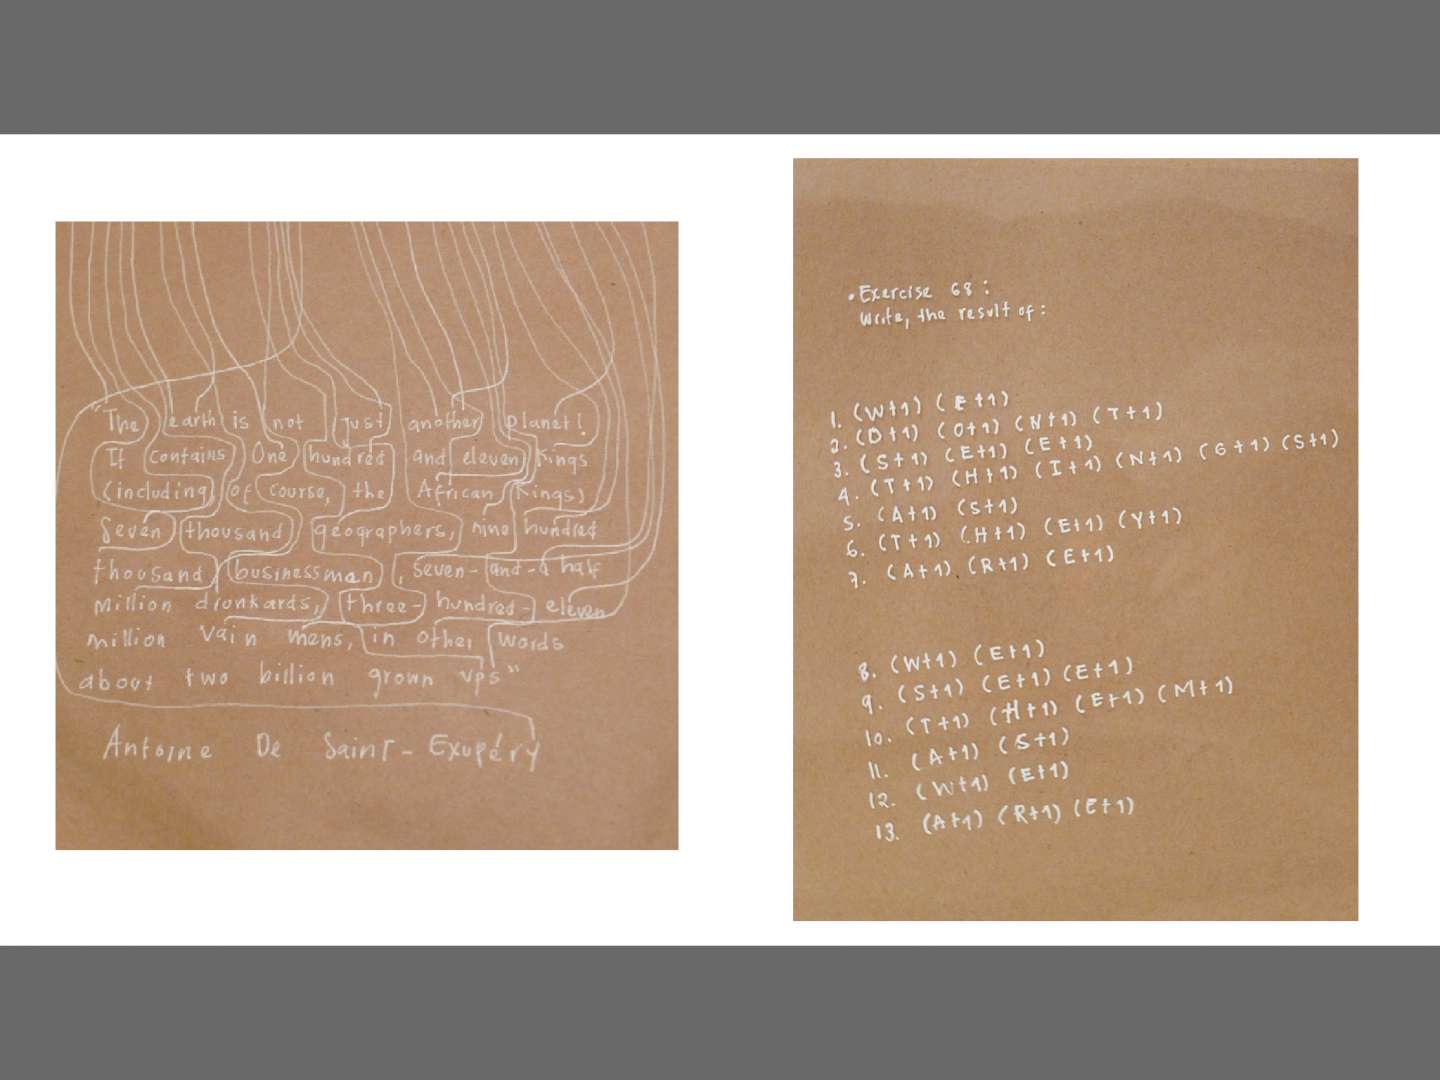 "The earth is not just another planet!
It contains One hundred and eleven Kings
(including of course, the African Kings)
Seven thousand geographers, nine hundred
thousand businessman, seven-and-a half
million drunkards, three-hundred-eleven
million vain mens, in other words
about two billion grown ups"
Antoine De Saint-Exupéry
•Exercise 68:
Write, the result of:
1. (W+1) (E+1)
2. (D+1) (O+1) (N+1) (T+1)
3. (S+1) (E+1) (E+1)
4. (T+1) (H+1) (I+1) (N+1) (G+1) (S+1)
5. (A+1) (S+1)
6. (T+1) (H+1) (E+1) (Y+1)
7. (A+1) (R+1) (E+1)
8. (W+1) (E+1)
9. (S+1) (E+1) (E+1)
10. (T+1) (H+1) (E+1) (M+1)
11. (A+1) (S+1)
12. (W+1) (E+1)
13. (A+1) (R+1) (E+1)